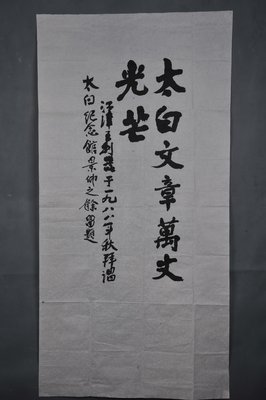 太白文章萬丈
光芒
江津于一九八八年秋拜謁
太白纪念館景仰之餘留題